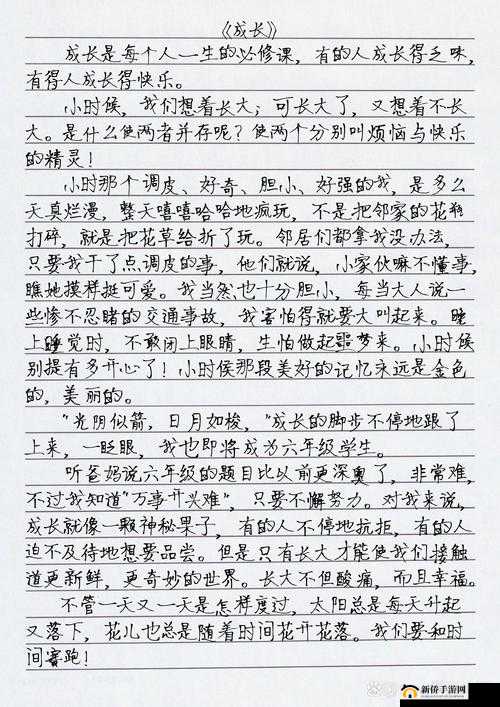 《成长》
成长是每个人一生的必修课，有的人成长得乏味，
有得人成长得快乐。
小时候，我们想着长大；可长大了，又想着不长
大。是什么使两者并存呢？使两个分别叫烦恼与快乐
的精灵！
小时那个调皮、好奇、胆小、好强的我，是多么
天真烂漫，整天嘻嘻哈哈地疯玩，不是把邻家的花瓶
打碎，就是把花草给折了玩。邻居们都拿我没办法，
只要我干了点调皮的事，他们就说，小家伙嘛不懂事，
瞧她摸样挺可爱。我当然也十分胆小，每当大人说一
些惨不忍睹的交通事故，我害怕得就要大叫起来。晚
上睡觉时，不敢闭上眼睛，生怕做起噩梦来。小时候
别提有多开心了！小时侯那段美好的记忆永远是金色
的，美丽的。
"光阴似箭，日月如梭，"成长的脚步不停地跟了
上来，一眨眼，我也即将成为六年级学生。
听爸妈说六年级的题目比以前更深奥了，非常难，
不过我知道"万事开兴难"，只要不懈努力。对我来说，
成长就像一颗神秘果子，有的人不停地抗拒，有的人
迫不及待地想要品尝。但是只有长大才能使我们接触
道更新鲜，更奇妙的世界。长大不但酸痛，而且幸福。
不管一天又一天是怎样度过，太阳总是每天升起
又落下，花儿也总是随着时间花开花落。我们要和时
间赛跑！
新侨手游网